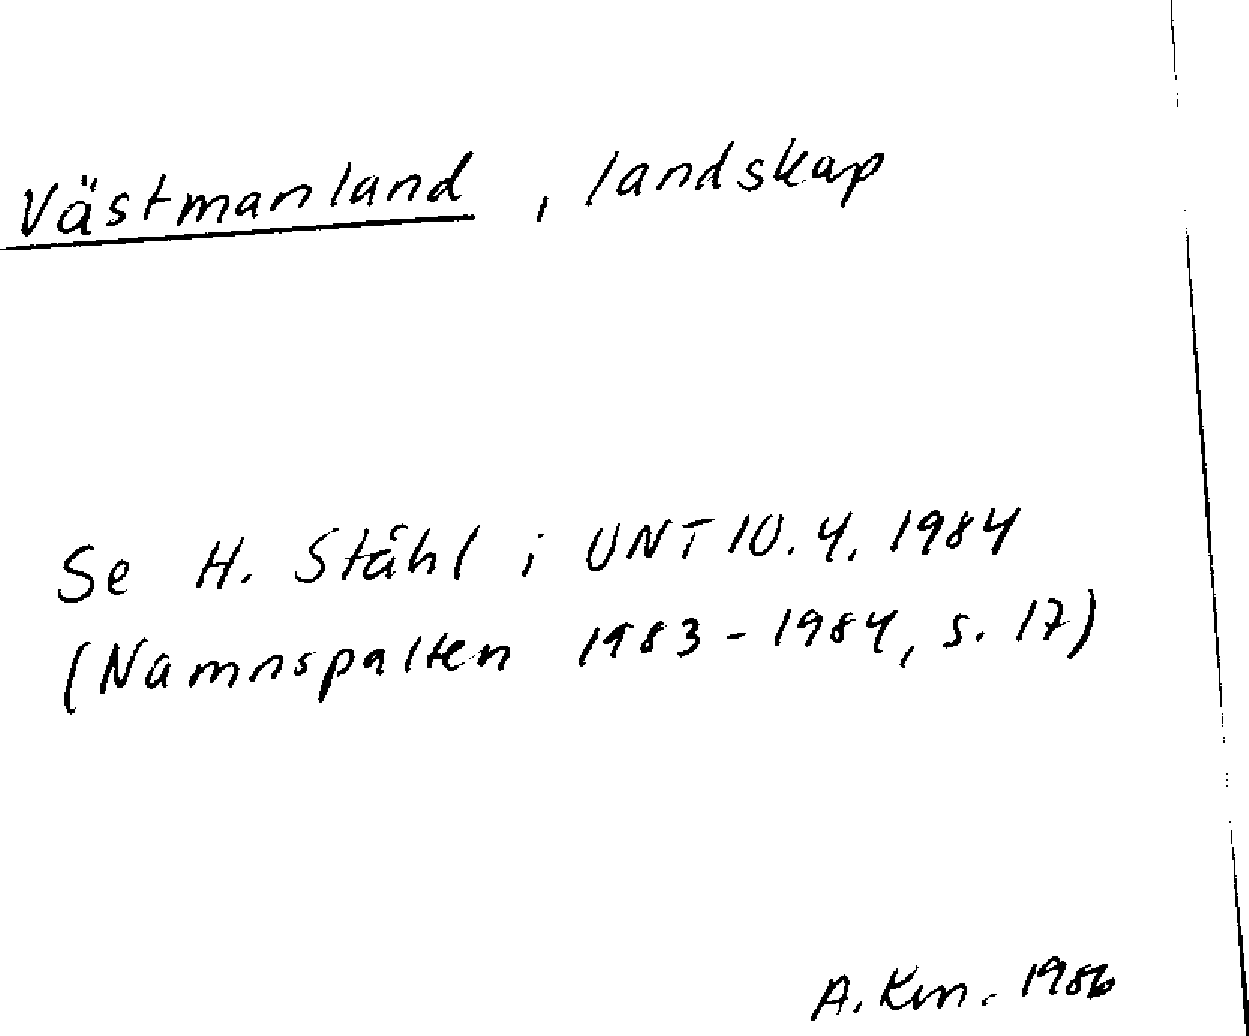 Västmanland, landskap
Se H. Ståhl i UNT 10.4.1984
(Namnspalten 1983-1984, s. 17)
A. Km. 1986